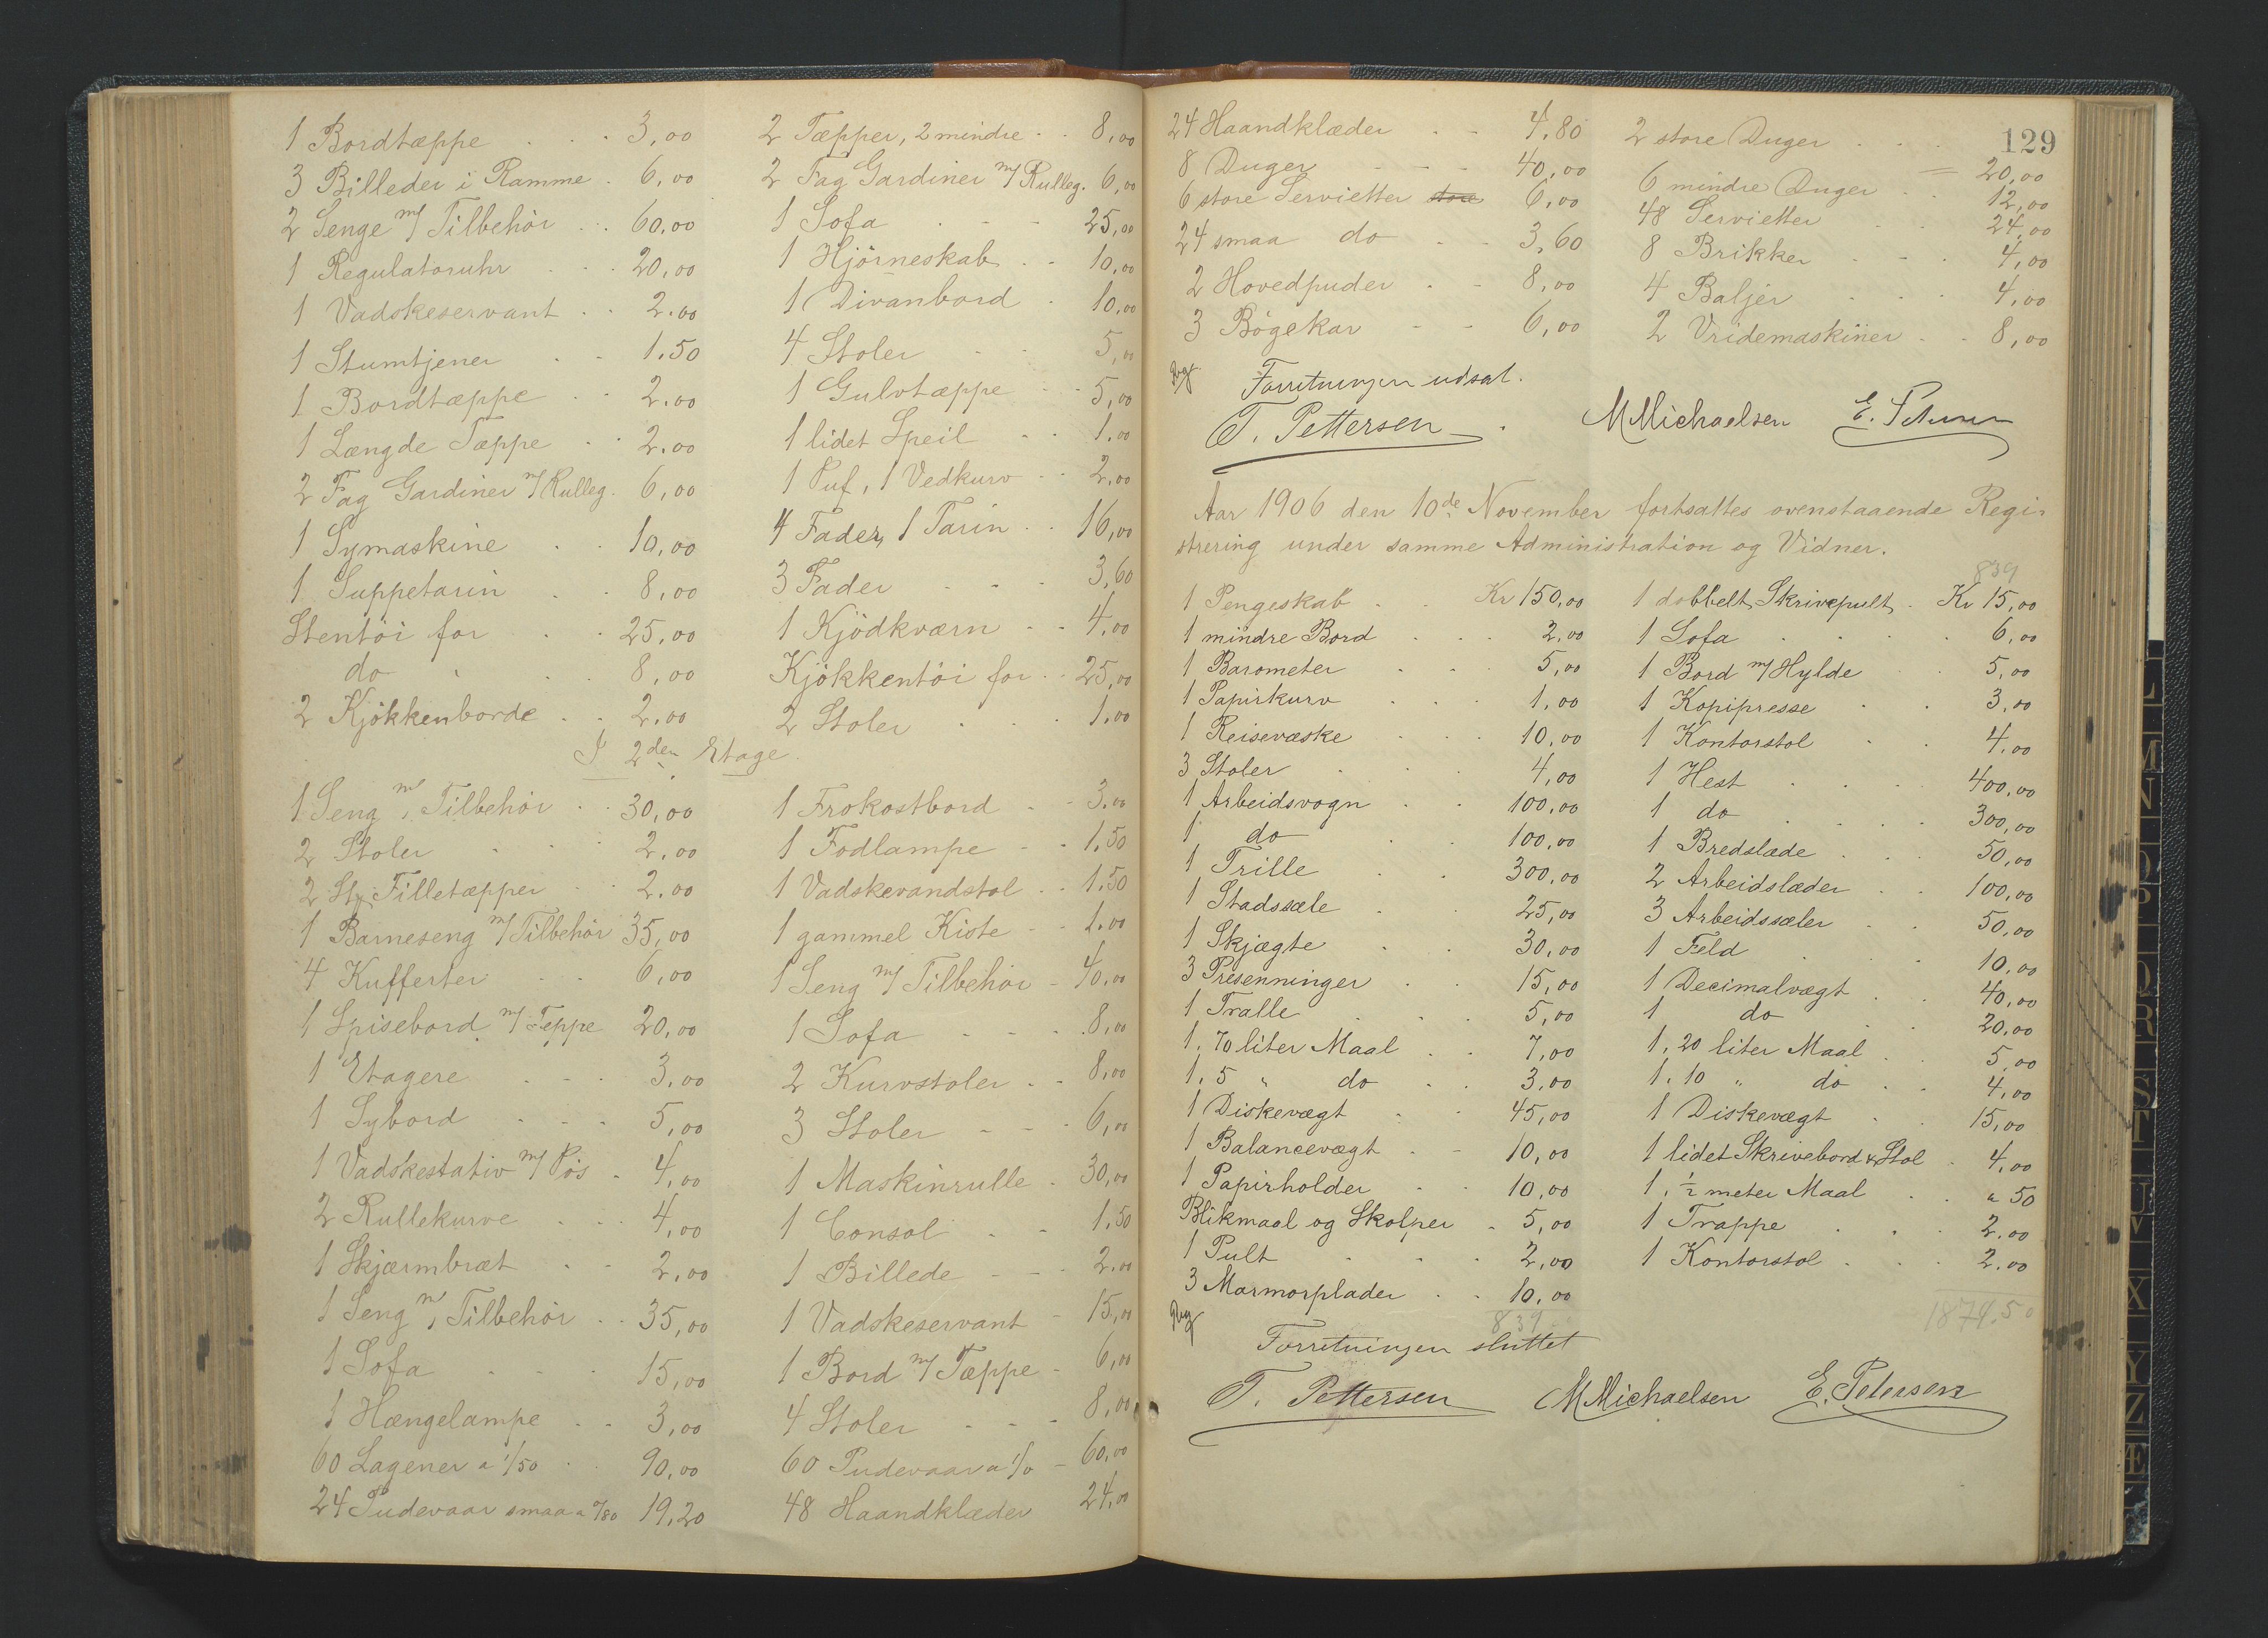 1 Bordtæppe 3,00
3 Billeder i Ramme 6,00
2 Senge m/ Tilbehör 60,00
1 Regulatoruhr 20,00
1 Vadskeservant 2.00
1 Stumtjener 1.50
1 Bordtæppe 2.00
1 Længde Tæppe 2.00
2 Fag Gardiner m/ Rulleg. 6,00
1 Symaskine 10,00
1 Suppetarin 8,00
Stentöi for 25,00
do 8,00
2 Kjökkenborde 2.00
2 Tæpper, 2 mindre 8,00
2 Fag Gardiner m/ Rulleg. 6,00
1 Sofa 25,00
1 Hjörneskab 10,00
1 Divanbord 10,00
4 Stoler 5,00
1 Gulvtæppe 5,00
1 lidet Speil 1.00
1 Puf, 1 Vedkurv 2,00
4 Fader, 1 Tarin 16,00
3 Fader 3,60
1 Kjödkværn 4,00
Kjökkentöi for 25,00
2 Stoler 1,00
I 2den Etage
1 Seng m/ Tilbehör 30,00
2 Stoler 2,00
2 Stk Filletæpper 2.00
1 Barneseng m/ Tilbehör 35,00
4 Kufferter 6,00
1 Spisebord m/ Teppe 20,00
1 Etagere 3,00
1 Sybord 5,00
1 Vadskestativ m/ Pös 4,00
2 Rullekurve 4,00
1 Skjærmbræt 2,00
1 Seng m/ Tilbehör 35,00
1 Sofa 15,00
1 Hængelampe 3,00
60 Lagener a 1/50 90,00
24 Pudevaar smaa a 0/80 19,20
1 Frokostbord 3.00
1 Fodlampe 1.50
1 Vadskevandstol 1.50
1 gammel Kiste 1.00
1 Seng m/ Tilbehör 40,00
1 Sofa 8,00
2 Kurvstoler 8,00
3 Stoler 6,00
1 Maskinrulle 30,00
1 Consol 1,50
1 Billede 2.00
1 Vadskeservant 15,00
1 Bord m/ Tæppe 6,00
4 Stoler 8,00
60 Pudevaar a 1/0 60,00
48 Haandklæder 24,00
129
24 Haandklæder 4.80
8 Duger 40,00
6 store Servietter store 6,00
24 smaa do 3,60
2 Hovedpuder 8,00
3 Bögekar 6,00
2 store Duger 20,00
6 mindre Duger 12,00
48 Servietter 24,00
8 Brikker 4,00
4 Baljer 4,00
2 Vridemaskiner 8,00
Forretningen udsat.
T. Pettersen MMichaelsen E. Petersen
Aar 1906 den 10de November fortsattes ovenstaaende Regi-
strering under samme Administration og Vidner.
839
1 Pengeskab Kr 150,00
1 mindre Bord 2,00
1 Barometer 5,00
1 Papirkurv 1,00
1 Reisevæske 10,00
3 Stoler 4,00
1 Arbeidsvogn 100,00
1 do 100,00
1 Trille 300,00
1 Stadssæle 25,00
1 Skjægte 30,00
3 Presenninger 15,00
1 Tralle 5,00
1. 70 liter Maal 7,00
1. 5 " do 3,00
1 Diskevægt 45,00
1 Balancevægt 10,00
1 Papirholder 10,00
Blikmaal og Skolper 5,00
1 Pult 2,00
3 Marmorplader 10,00
839
1 dobbelt Skrivepult Kr 15,00
1 Sofa 6,00
1 Bord m/ Hylde 5,00
1 Kopipresse 3,00
1 Kontorstol 4,00
1 Hest 400,00
1 do 300,00
1 Bredslæde 50,00
2 Arbeidslæder 100,00
3 Arbeidssæler 50,00
1 Feld 10,00
1 Decimalvægt 40,00
1 do 20,00
1. 20 liter Maal 5,00
1. 10 " do 4,00
1 Diskevægt 15,00
1 lidet Skrivebord & Stol 4,00
1. 1/2 meter Maal " 50
1 Trappe 2.00
1 Kontorstol 2.00
1874.50
Forretningen sluttet
T. Pettersen MMichaelsen E. Petersen